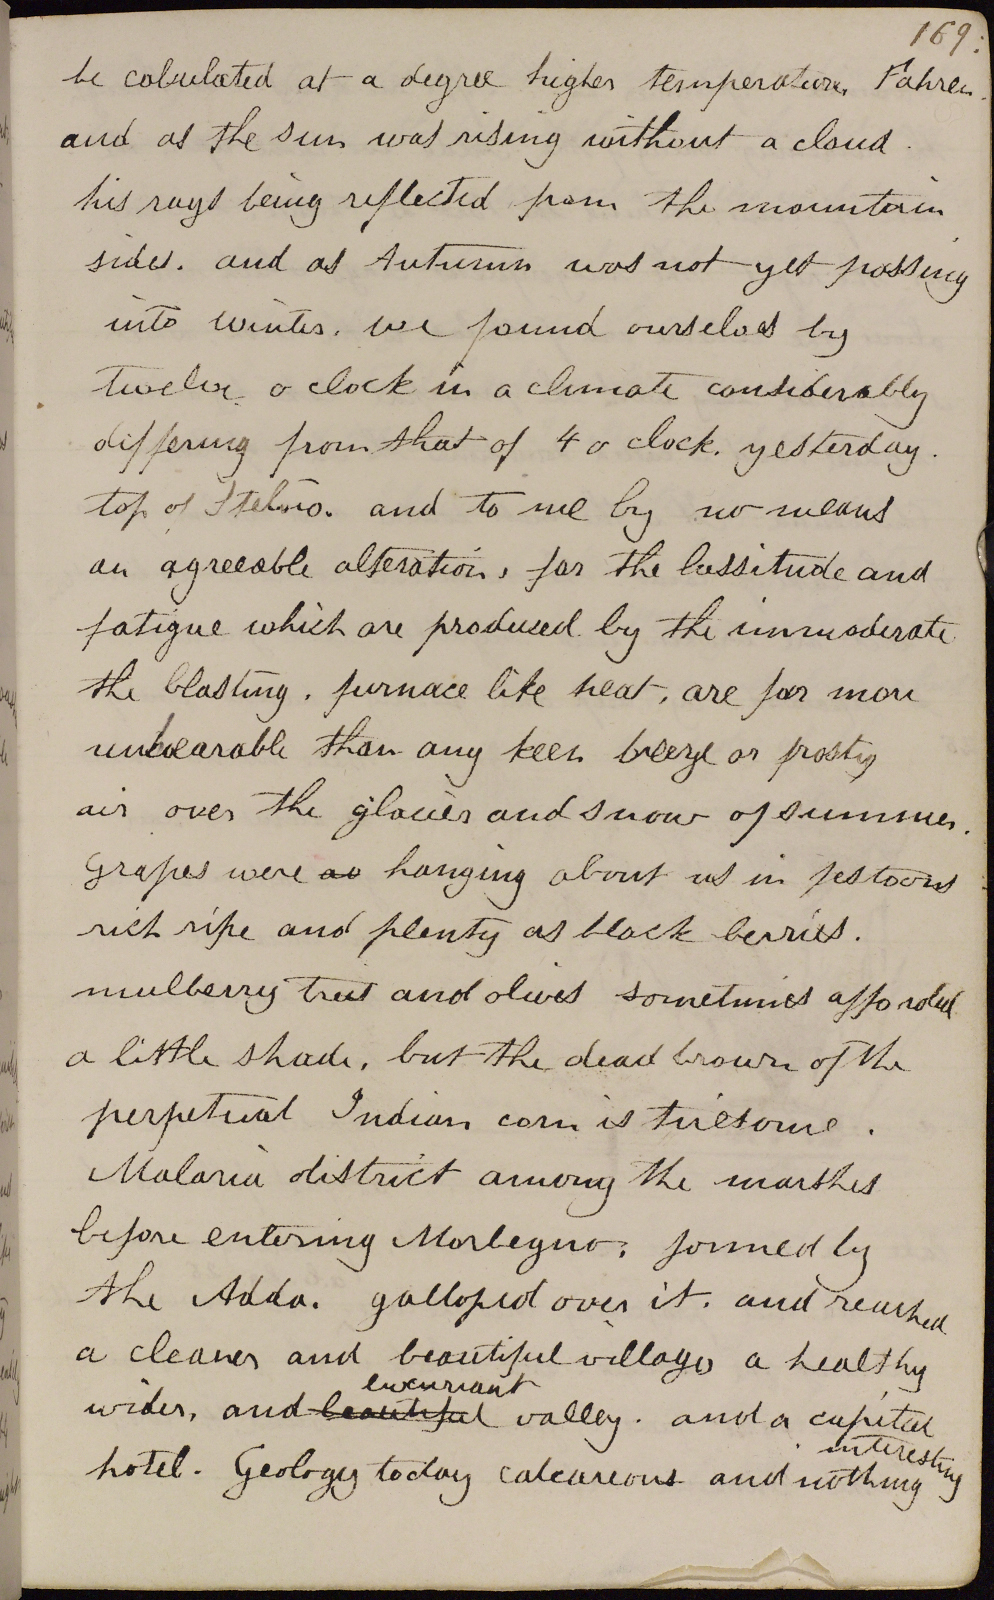 169:
be calculated at a degree higher temperature, Fahren.
and as the sun was rising without a cloud.
his rays being reflected from the mountain
sides. and as Autumn was not yet passing
into winter. we found ourselves by
twelve o clock in a climate considerably
differing from that of 4 o clock. yesterday.
top of Stelvio. and to me by no means
an agreeable alteration, for the lassitude and
fatigue which are produced by the immoderate
the blasting, furnace like heat, are far more
unbearable than any keen breeze or frosty
air over the glacier and snow of summer.
Grapes were as hanging about us in festoons
rich ripe and plenty as black berries.
mulberry trees and olives sometimes afforded
a little shade, but the dead brown of the
perpetual Indian corn is tiresome.
Malaria district among the marshes
before entering Morbegno; formed by
the Adda. galloped over it. and reached
a cleaner and beautiful village a healthy
luxuriant
wider, and beautiful valley. and a capital
hotel. Geology today calcareous and nothing
interesting